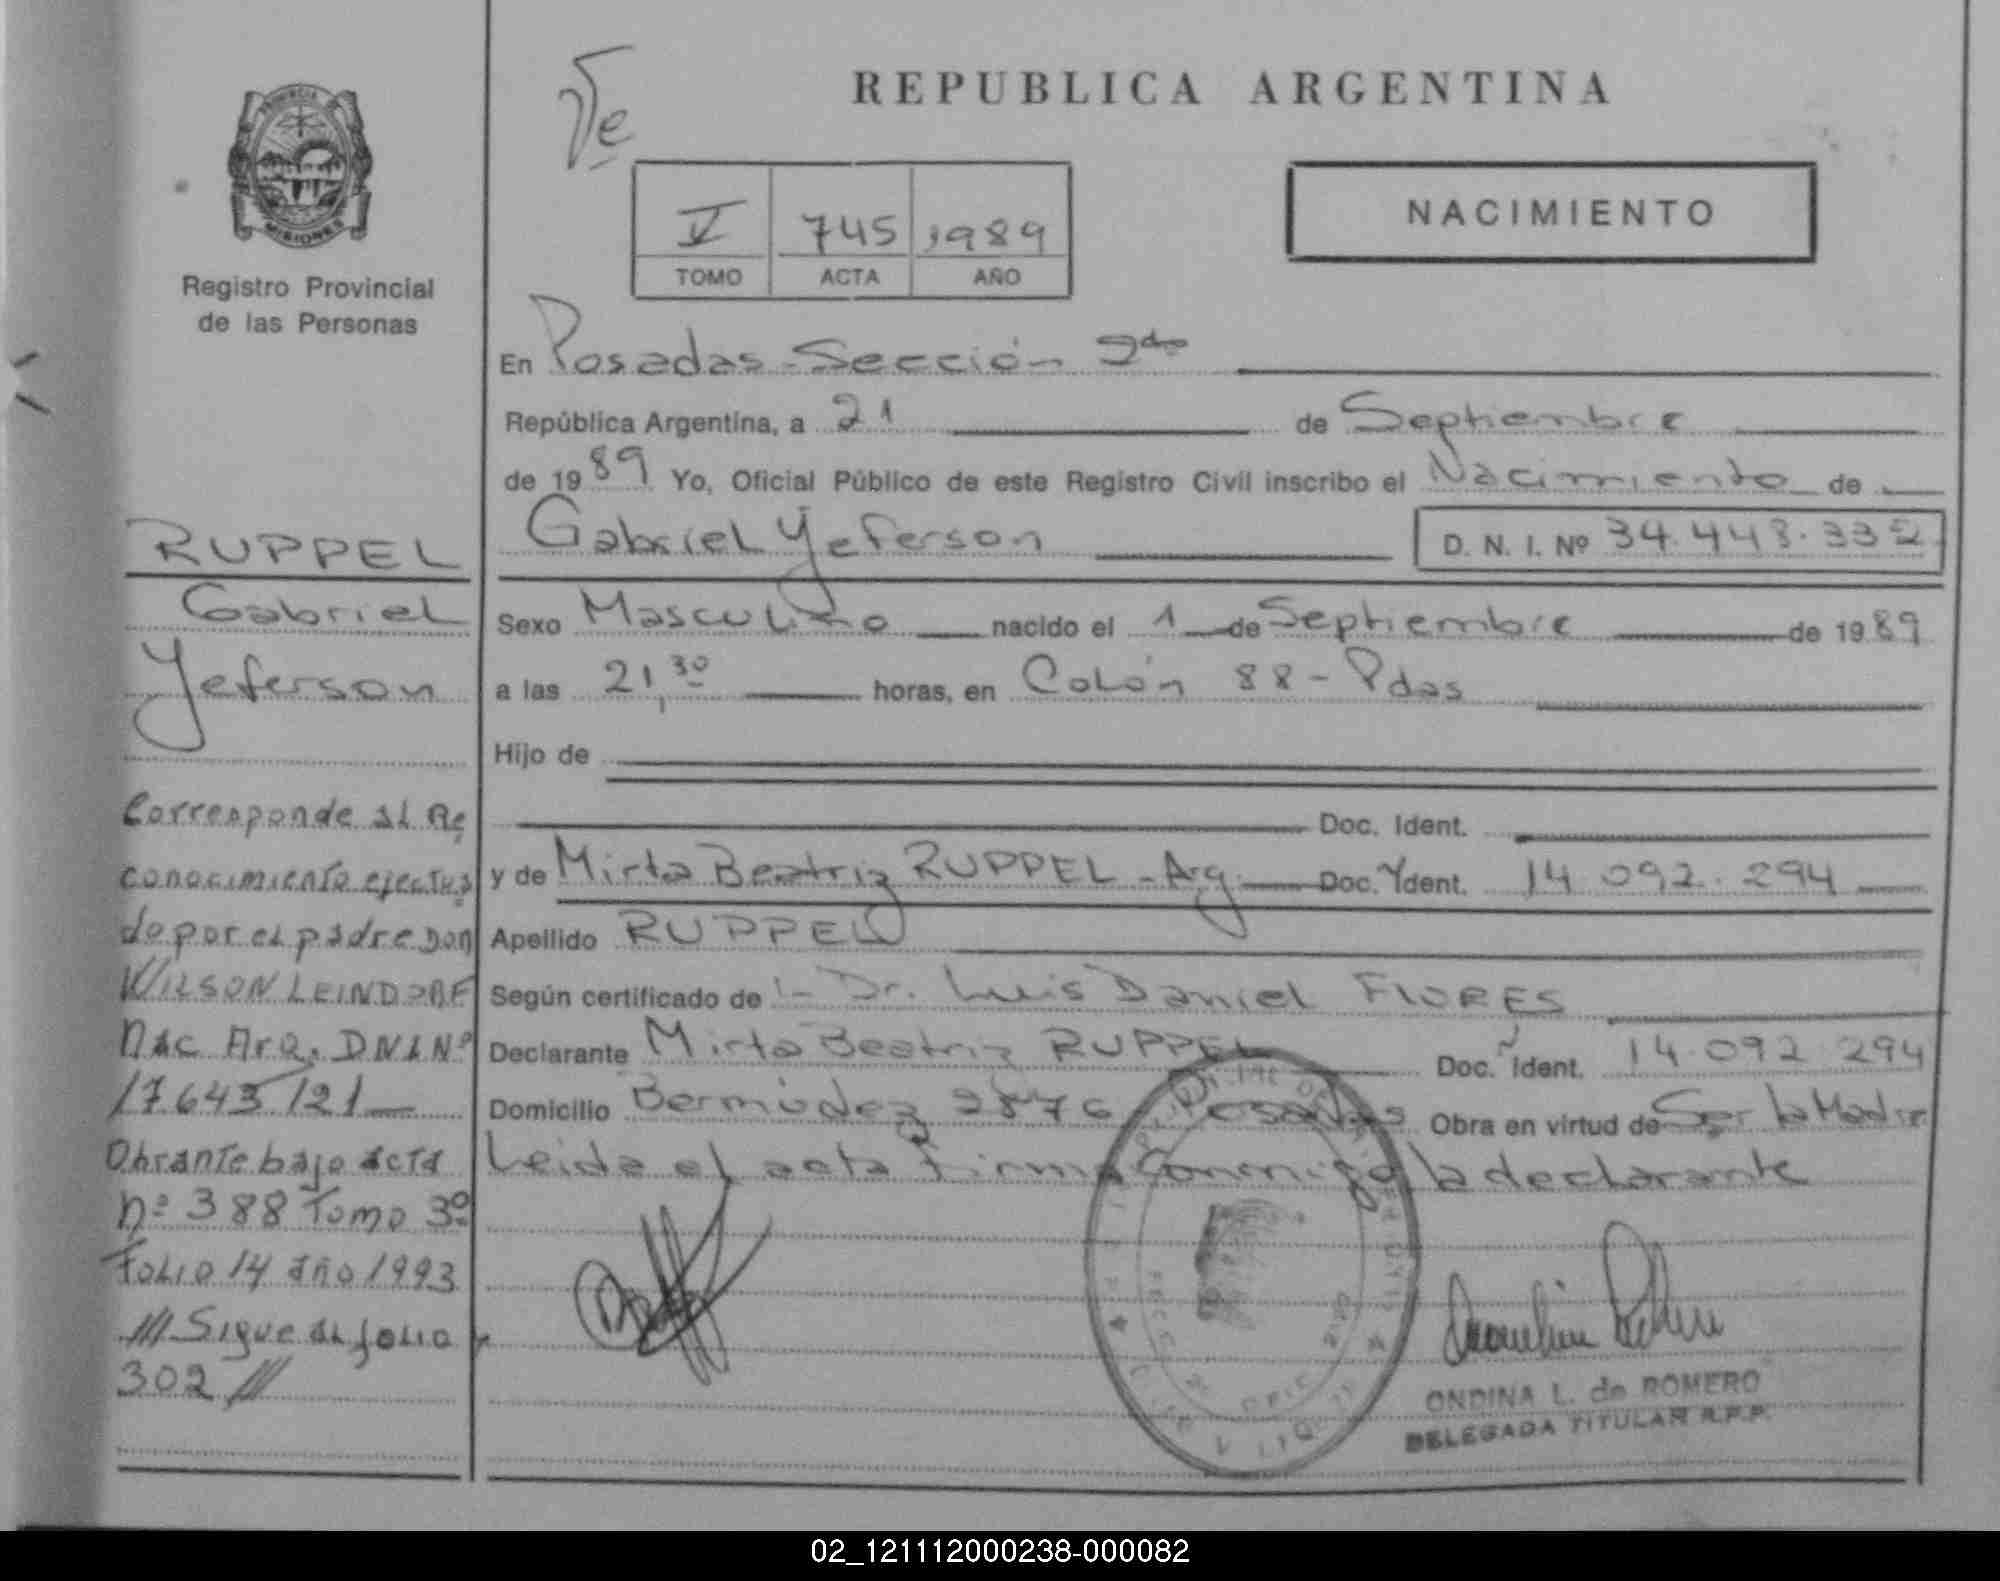 REPUBLICA ARGENTINA
NACIMIENTO
V 745 1989
TOMO ACTA AÑO
PROVINCIA DE
MISIONES
Registro Provincial
de las Personas
En Posadas - Sección 2da
República Argentina, a 21 de Septiembre
de 1989 Yo, Oficial Público de este Registro Civil inscribo el Nacimiento de
Gabriel Yeferson D. N. I. Nº 34.448.332
Sexo Masculino nacido el 1 de Septiembre de 1989
a las 21,30 horas, en Colón 88 - Pdas
Hijo de
Doc. Ident.
y de Mirta Beatriz RUPPEL - Arg. Doc. Ident. 14.092.294
Apellido RUPPEL
Según certificado de Dr. Luis Daniel FLORES
Declarante Mirta Beatriz RUPPEL Doc. Ident. 14.092.294
Domicilio Bermúdez 2876 Posadas Obra en virtud de Ser la Madre
Leida el acta firma conmigo la declarante
ONDINA L. de ROMERO
DELEGADA TITULAR R.P.P.
RUPPEL
Gabriel
Yeferson
Corresponde al Re
conocimiento efectua
do por el padre Don
WILSON LEINDORF
Nac Arg. DNI Nº
17.643.121
Obrante bajo acta
nº 388 Tomo 3º
Folio 14 año 1993
/// Sigue al folio
302 ///
02_121112000238-000082